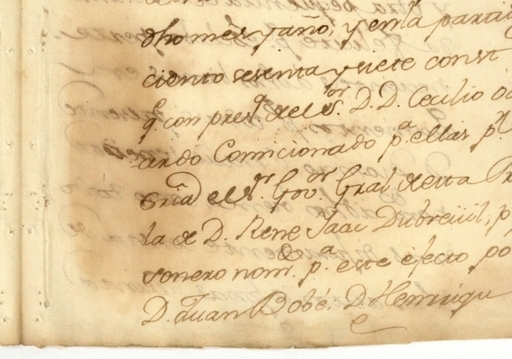 dho mes, y año, y en la parti
ciento sesenta y siete const
q.e con pres.a del S.or D. D. Cecilio o
ardo Comicionado p.a ellas p.r
oria el S.r Gov.or Gral de esta Pr
la de D. Rene Isaac Dubreüil, p
sonero nom.do p.a este efecto po
D. Juan Bobé, D. Henrriqu
e